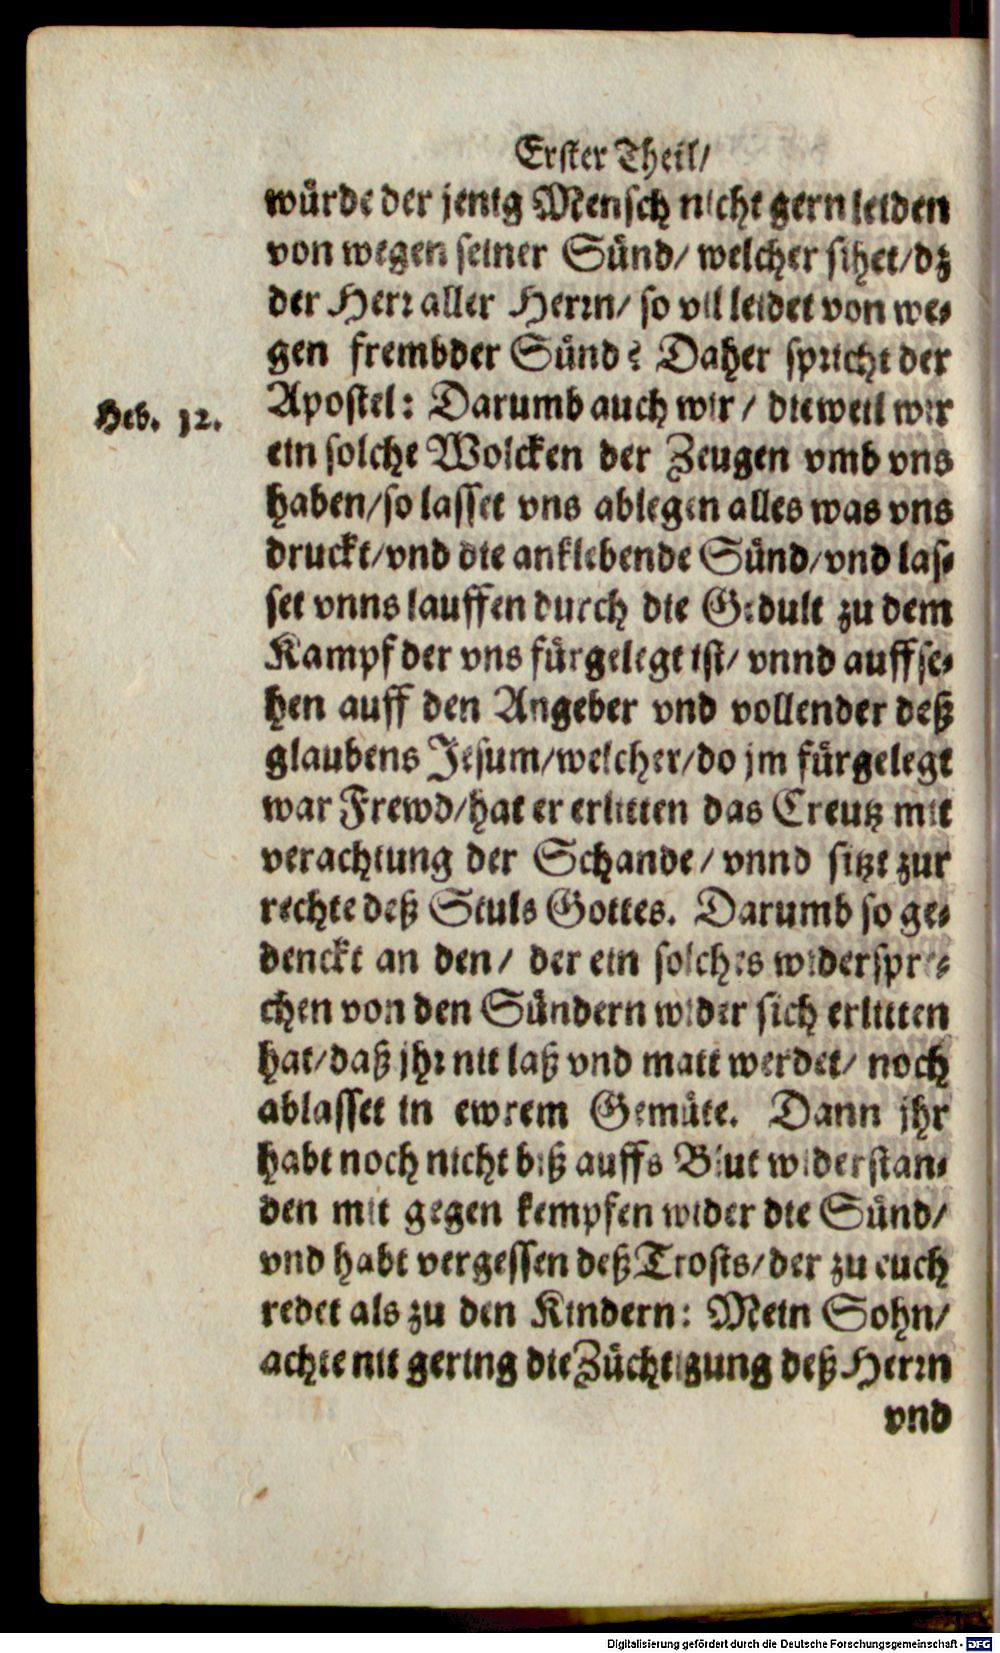 Erster Theil/
würde der jenig Mensch nicht gern leiden
von wegen seiner Sünd/ welcher sihet/dz
der Herr aller Herrn/ so vil leidet von we-
gen frembder Sünd? Daher spricht der
Heb. 12.
Apostel: Darumb auch wir / dieweil wir
ein solche Wolcken der Zeugen vmb vns
haben/so lasset vns ablegen alles was vns
druckt/vnd die anklebende Sünd/vnd las-
set vnns lauffen durch die Gedult zu dem
Kampf der vns fürgelegt ist/ vnnd auffse-
hen auff den Angeber vnd vollender deß
glaubens Jesum/welcher/do jm fürgelegt
war Frewd/hat er erlitten das Creutz mit
verachtung der Schande/ vnnd sitzt zur
rechte deß Stuls Gottes. Darumb so ge-
denckt an den/ der ein solches widerspre-
chen von den Sündern wider sich erlitten
hat/daß jhr nit laß vnd matt werdet/ noch
ablasset in ewrem Gemüte. Dann jhr
habt noch nicht biß auffs Blut widerstan-
den mit gegen kempfen wider die Sünd/
vnd habt vergessen deß Trosts/der zu euch
redet als zu den Kindern: Mein Sohn/
achte nit gering die Züchtigung deß Herrn
vnd
Digitalisierung gefördert durch die Deutsche Forschungsgemeinschaft - DFG